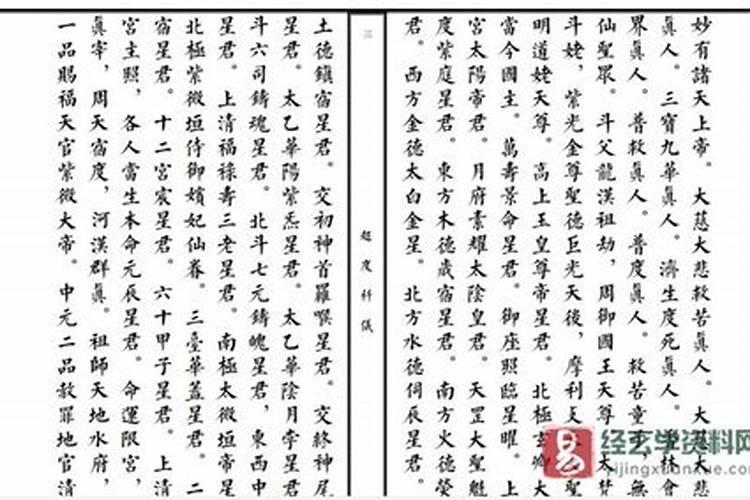 妙有諸天上帝。大慈大悲救苦眞人。大慈大悲
眞人。三寶九華眞人。濟生度死眞人。
界眞人。普救眞人。普度眞人。救苦童子，無
仙聖眾。斗父龍漢祖劫，周御國王天尊，太梵
斗姥，紫光金尊聖德巨光天後，摩利支天
明道姥天尊。高上玉皇尊帝星君。北極玄卿大
當今國主。萬壽景命星君。御座照臨星曜。上
宮太陽帝君。月府素耀太陰皇君。天罡大聖魁
度紫庭星君。東方木德歲宿星君。南方火德熒
君。西方金德太白金星。北方水德伺辰星君。
三
超度科儀
土德鎮宿星君。交初神首羅睺星君。交終神尾
星君。太乙華陽紫炁星君。太乙華陰月孛星君
斗六司鑄魂星君。北斗七元鑄魄星君，東西中
星君。上清福祿壽三老星君。南極太微垣帝星
北極紫微垣侍御嬪妃仙眷。三臺華蓋星君。二
宿星君。十二宮宸星君。六十甲子星君。上清
宮主照，各人當生本命元辰星君。命運限宮，
眞宰，周天宿度，河漢群眞。祖師天地水府，
一品賜福天官紫微大帝。中元二品赦罪地官清
易
经玄学资料网
jijingxuanxue.com